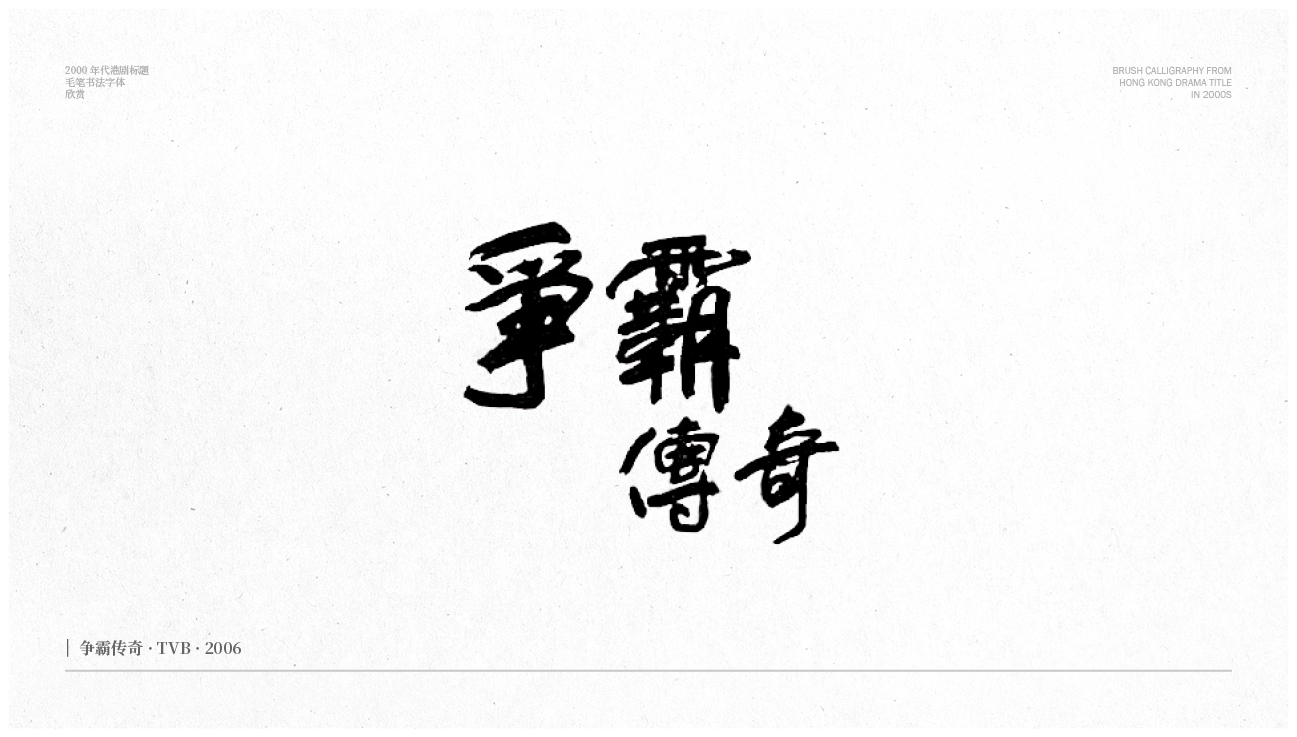 2000 年代港剧标题
毛笔书法字体
欣赏
BRUSH CALLIGRAPHY FROM
HONG KONG DRAMA TITLE
IN 2000S
爭霸
傳奇
争霸传奇 · TVB · 2006